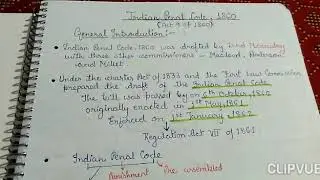 Indian Penal Code, 1860
(Act 45 of 1860)
General Introduction:-
Indian Penal Code, 1860 was drafted by Lord Macaulay
with three other commissioners - Macleod, Anderson
and Millet.
Under the charter Act of 1833 and the First Law Commission
prepared the draft of the Indian Penal Code
The bill was passed by on 6th October, 1860
originally enacted in 1st May, 1861
Enforced on 1st January, 1862
Regulation Act VII of 1861
Indian Penal Code
Punishment
assembled
CLIPVUE